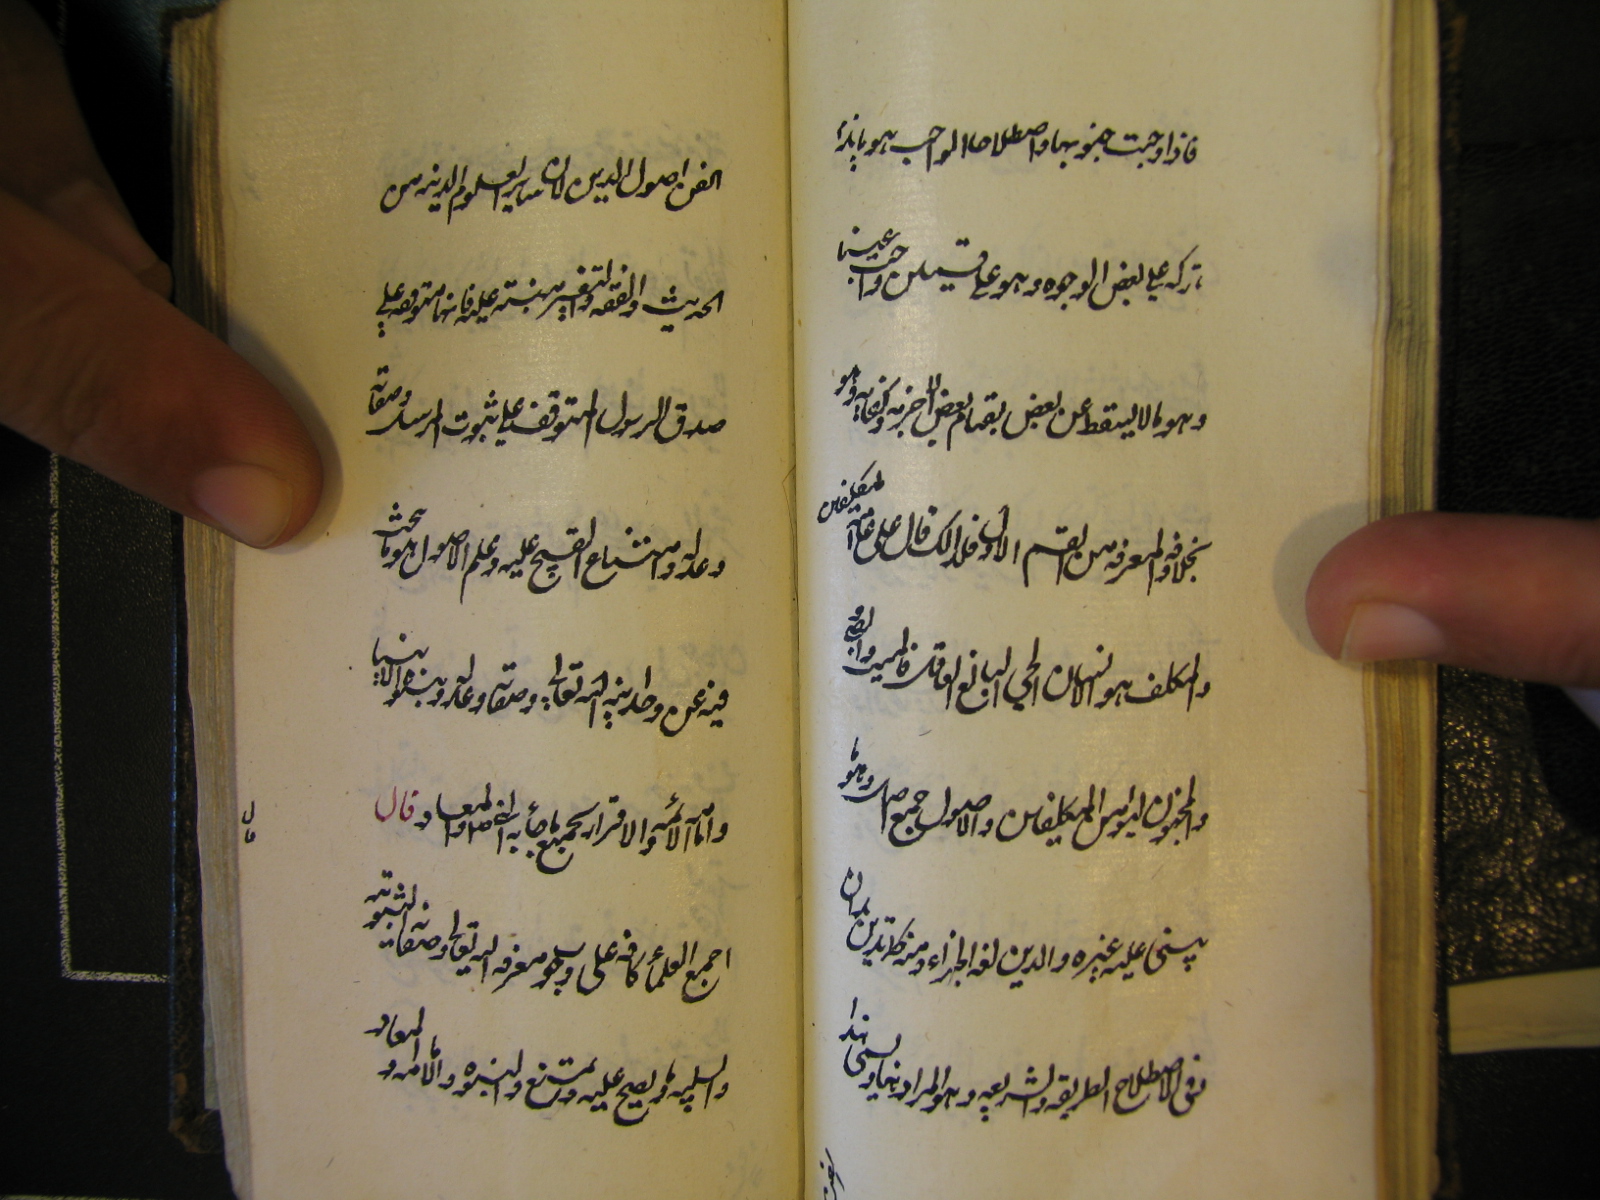 فاذا وجبت جنوبها واصطلاحا الواجب هو ما يذم
تركه على بعض الوجوه وهو على قسمين واجب عينا
وهو ما لا يسقط عن بعض بقيام بعض الاخر به وكفاية وهو
بخلافه والمعرفة من القسم الاول فلذلك قال على عامة المكلفين
والمكلف هو الانسان الحي البالغ العاقل فالميت والصبي
والمجنون ليسوا من المكلفين والاصول جمع اصل وهو ما
يبنى عليه غيره والدين لغة الجزاء ومنه كما تدين تدان
وفي الاصطلاح الطريقة والشريعة وهو المراد هنا وسمى هذا
الفن اصول الدين لان ساير العلوم الدينيه من
الحديث والفقه والتفسير مبنيته عليه فانها متوقفه على
صدق الرسول المتوقف على ثبوت المرسل وصفاته
وعدله وامتناع القبيح عليه وعلم الاصول هو ما يبحث
فيه عن وحدانية الله تعالى وصفاته وعدله ونبوة الانبيا
وامامة الائمة والاقرار بجميع ما جاء به والمعاد قال
قال
اجمع العلماء كافة على وجوب معرفة الله تعالى وصفاته الثبوتيه
والسلبيه وما يصح عليه وما يمتنع والنبوه والامامه و المعاد